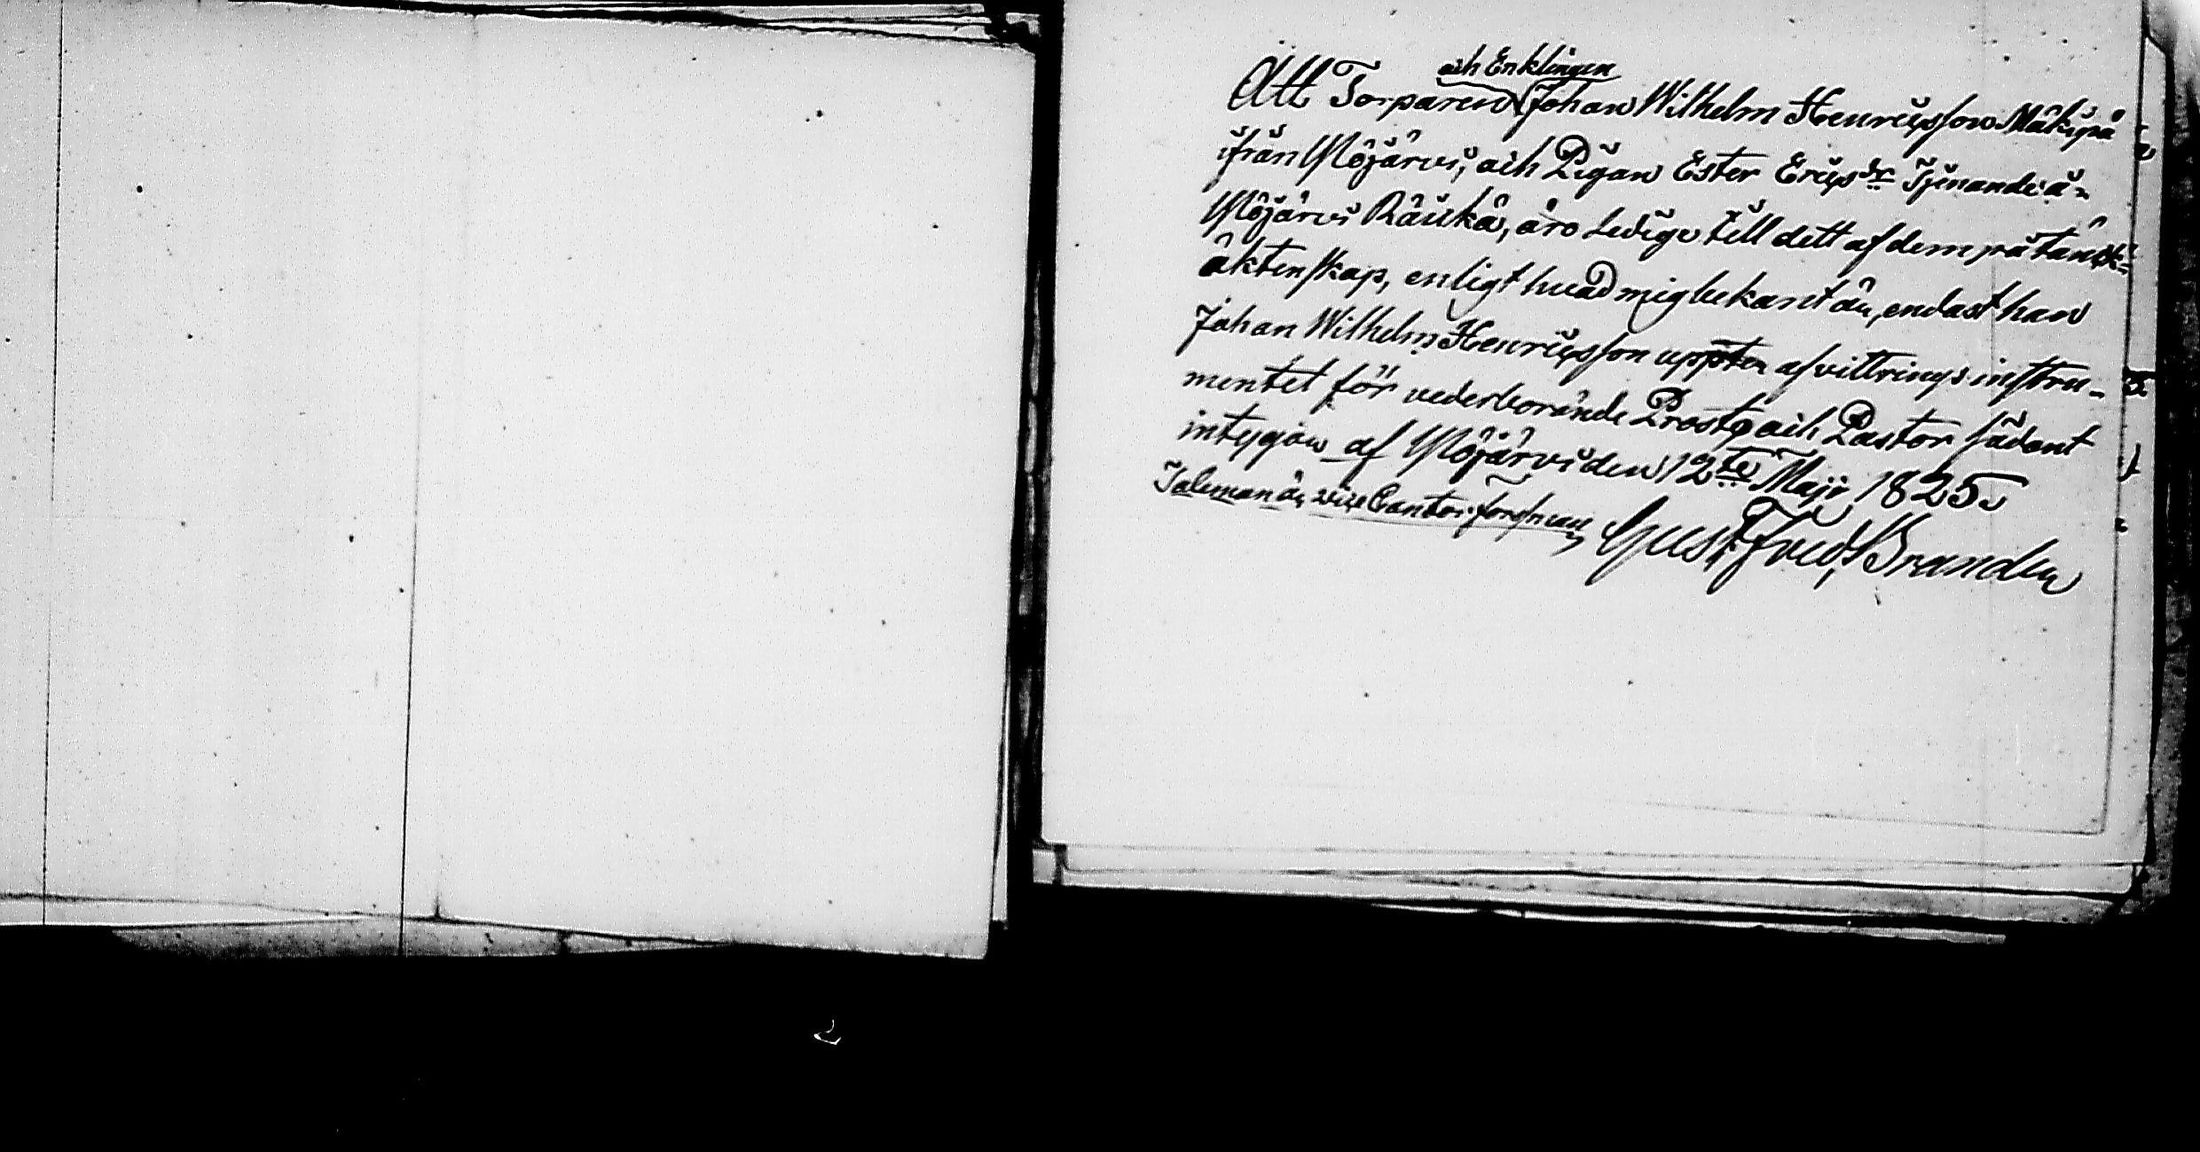 och Enklingen
Att Torparen Johan Wilhelm Henricsson Mäkipä
ifrån Ylöjärvi, och Pigan Ester Ericsdr Tjenande å
Ylöjärvi Räikkä, äro Ledige till dett af dem påtänck-
äktenskap, enligt hvad mig bekant är, endast han
Johan Wilhelm Henricsson uppter afvittrings instru-
mentet för vederbörande Prost och Pastor sådant
intygar af Ylöjärvi den 12te Maji 1825.
vice Cantor
Gust. Fred. Brander